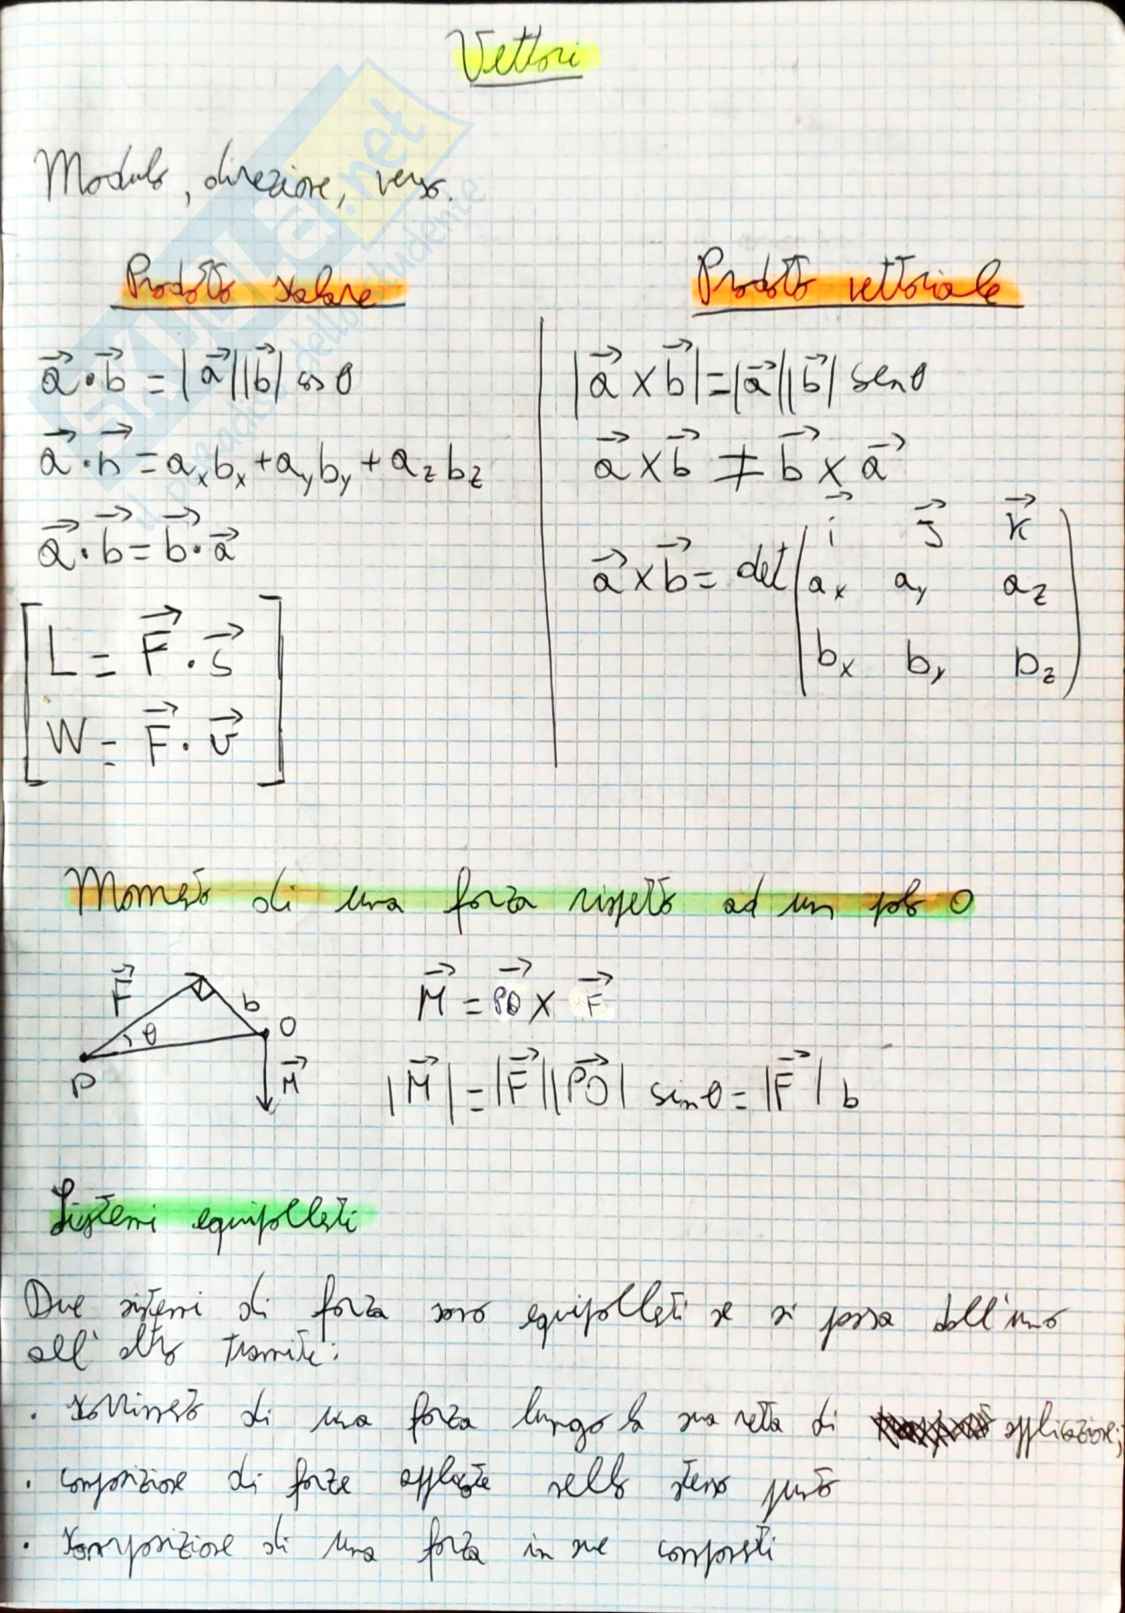 Vettori
Modulo, direzione, verso.
Prodotto scalare
a⃗ · b⃗ = |a⃗||b⃗| cos θ
a⃗ · b⃗ = aₓbₓ + a_y b_y + a_z b_z
a⃗ · b⃗ = b⃗ · a⃗
L = F⃗ · s⃗
W = F⃗ · v⃗
Prodotto vettoriale
|a⃗ × b⃗| = |a⃗||b⃗| sen θ
a⃗ × b⃗ ≠ b⃗ × a⃗
i⃗ j⃗ k⃗
a⃗ × b⃗ = det( aₓ a_y a_z
bₓ b_y b_z )
Momento di una forza rispetto ad un polo O
F⃗ b θ O P M⃗
M⃗ = PO⃗ × F⃗
|M⃗| = |F⃗||PO⃗| sin θ = |F⃗| b
Sistemi equipollenti
Due sistemi di forza sono equipollenti se si passa dall'uno
all'altro tramite:
· scorrimento di una forza lungo la sua retta di applicazione;
· composizione di forze applicate nello stesso punto
· scomposizione di una forza in sue componenti
SKUOLA.net
il paradiso dello studente